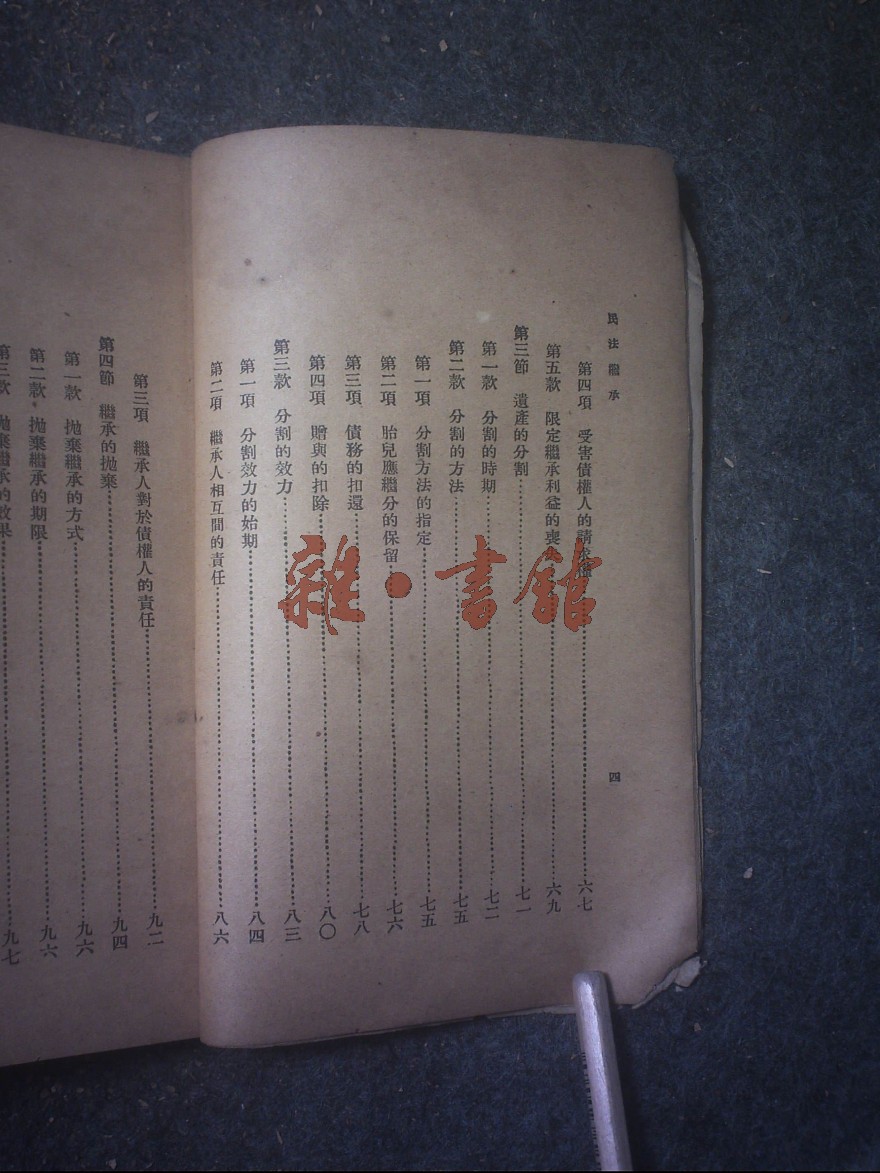 民法繼承
四
第四項 受害債權人的請求權……六七
第五款 限定繼承利益的喪失……六九
第三節 遺產的分割……七一
第一款 分割的時期……七二
第二款 分割的方法……七五
第一項 分割方法的指定……七五
第二項 胎兒應繼分的保留……七六
第三項 債務的扣還……七八
第四項 贈與的扣除……八〇
第三款 分割的效力……八三
第一項 分割效力的始期……八四
第二項 繼承人相互間的責任……八六
第三項 繼承人對於債權人的責任……九二
第四節 繼承的拋棄……九四
第一款 拋棄繼承的方式……九六
第二款 拋棄繼承的期限……九六
第三款 拋棄繼承的效果……九七
雜·書館